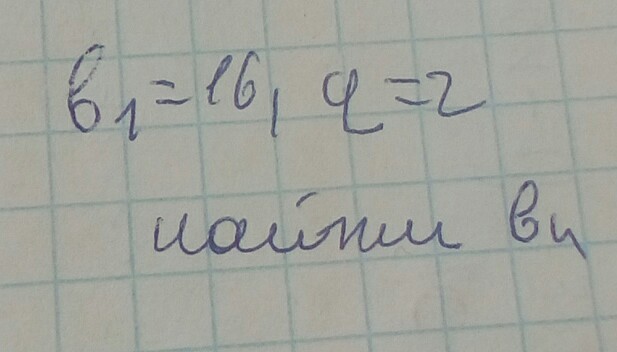 b₁=16, q=2
найти b₄